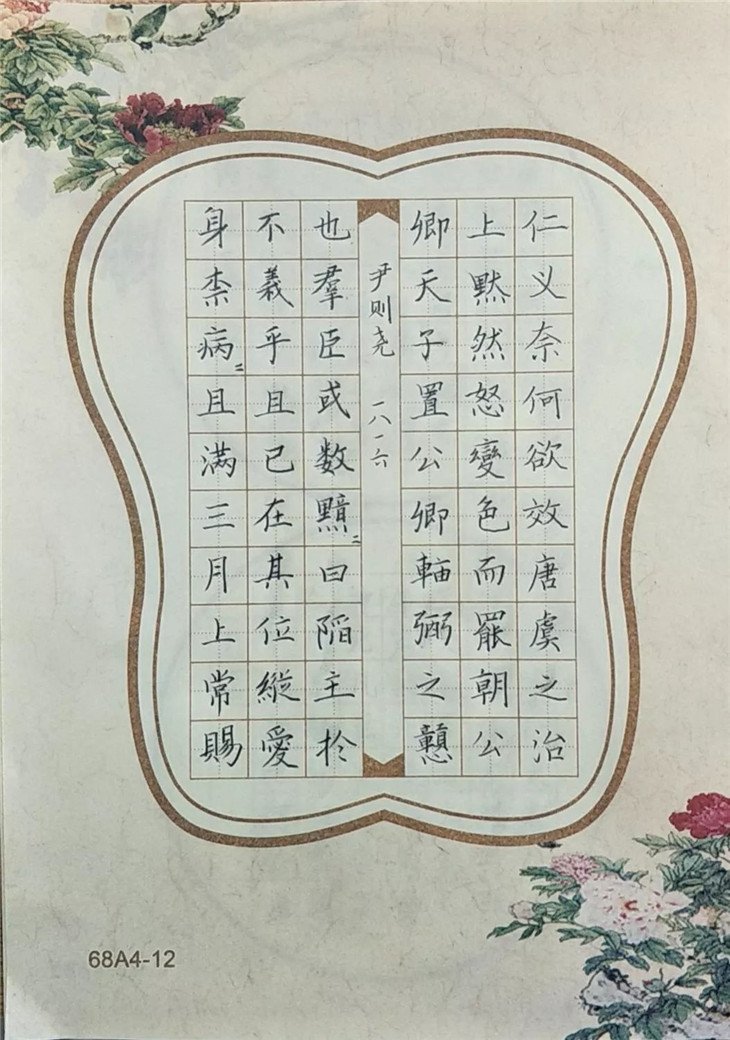 仁义奈何欲效唐虞之治
上默然怒變色而罷朝公
卿天子置公卿輔弼之戆
尹则尧 一八一六
也羣臣或数黯〻曰陷主扵
不義乎且已在其位縱愛
身柰病〻且满三月上常賜
68A4-12